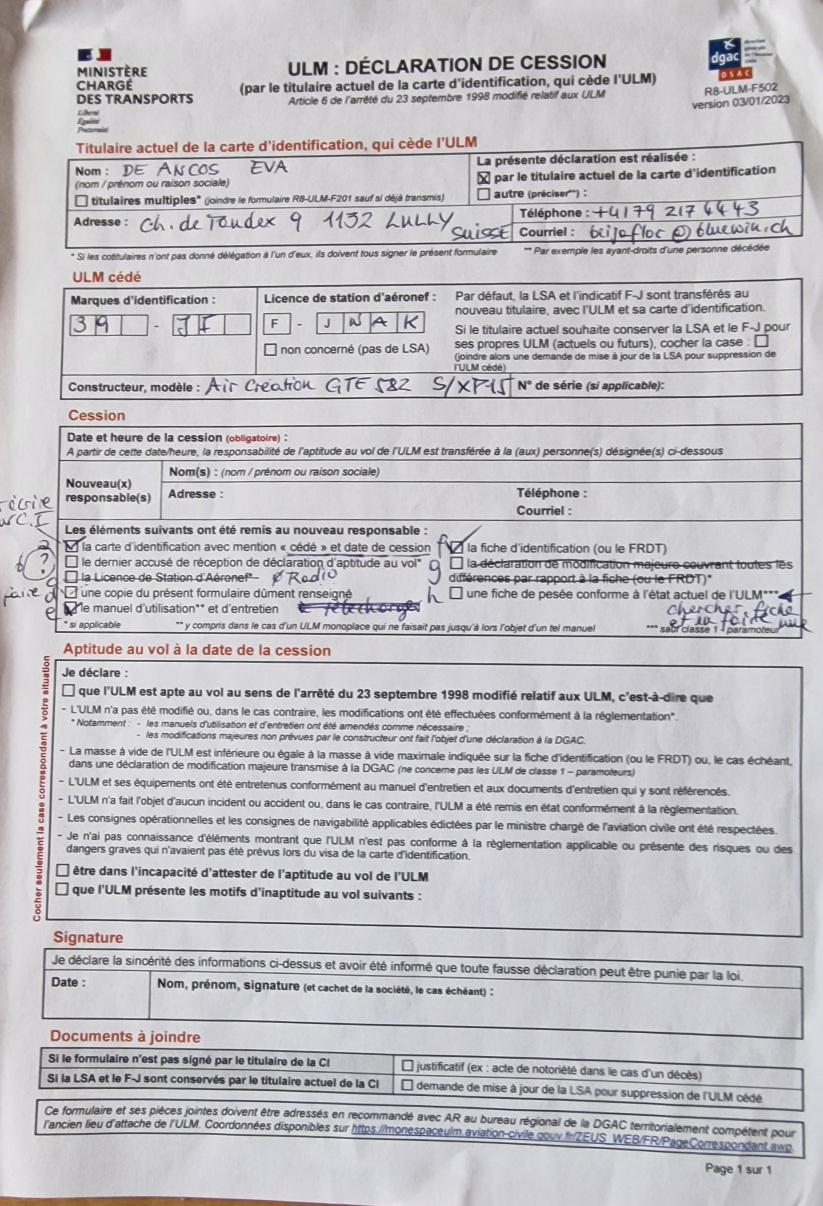 MINISTÈRE
CHARGÉ
DES TRANSPORTS
Liberté
Égalité
Fraternité
ULM : DÉCLARATION DE CESSION
(par le titulaire actuel de la carte d'identification, qui cède l'ULM)
Article 6 de l'arrêté du 23 septembre 1998 modifié relatif aux ULM
dgac
DSAC
R8-ULM-F502
version 03/01/2023
Titulaire actuel de la carte d'identification, qui cède l'ULM
Nom : DE ANCOS EVA
(nom / prénom ou raison sociale)
titulaires multiples* (joindre le formulaire R8-ULM-F201 sauf si déjà transmis)
La présente déclaration est réalisée :
par le titulaire actuel de la carte d'identification
autre (préciser**) :
Adresse : Ch. de Tandex 9 1132 LULLY Suisse
Téléphone : +4179 217 4443
Courriel : beijaflor@bluewin.ch
* Si les cotitulaires n'ont pas donné délégation à l'un d'eux, ils doivent tous signer le présent formulaire
** Par exemple les ayant-droits d'une personne décédée
ULM cédé
Marques d'identification :
39 - JI
Licence de station d'aéronef :
F - JWAK
non concerné (pas de LSA)
Par défaut, la LSA et l'indicatif F-J sont transférés au
nouveau titulaire, avec l'ULM et sa carte d'identification.
Si le titulaire actuel souhaite conserver la LSA et le F-J pour
ses propres ULM (actuels ou futurs), cocher la case :
(joindre alors une demande de mise à jour de la LSA pour suppression de
l'ULM cédé)
Constructeur, modèle : Air Création GTE 582 S/XP15
N° de série (si applicable):
Cession
Date et heure de la cession (obligatoire) :
A partir de cette date/heure, la responsabilité de l'aptitude au vol de l'ULM est transférée à la (aux) personne(s) désignée(s) ci-dessous
Nouveau(x)
responsable(s)
Nom(s) : (nom / prénom ou raison sociale)
Adresse :
Téléphone :
Courriel :
Les éléments suivants ont été remis au nouveau responsable :
la carte d'identification avec mention « cédé » et date de cession
f
la fiche d'identification (ou le FRDT)
b ?
le dernier accusé de réception de déclaration d'aptitude au vol*
g
la déclaration de modification majeure couvrant toutes les
différences par rapport à la fiche (ou le FRDT)*
la Licence de Station d'Aéronef* Ø Radio
faire d
une copie du présent formulaire dûment renseigné
h
une fiche de pesée conforme à l'état actuel de l'ULM***
e
le manuel d'utilisation** et d'entretien
chercher fiche
* si applicable
** y compris dans le cas d'un ULM monoplace qui ne faisait pas jusqu'à lors l'objet d'un tel manuel
*** sauf classe 1 - paramoteur
Aptitude au vol à la date de la cession
Cocher seulement la case correspondant à votre situation
Je déclare :
que l'ULM est apte au vol au sens de l'arrêté du 23 septembre 1998 modifié relatif aux ULM, c'est-à-dire que
- L'ULM n'a pas été modifié ou, dans le cas contraire, les modifications ont été effectuées conformément à la règlementation*.
* Notamment : - les manuels d'utilisation et d'entretien ont été amendés comme nécessaire ;
- les modifications majeures non prévues par le constructeur ont fait l'objet d'une déclaration à la DGAC.
- La masse à vide de l'ULM est inférieure ou égale à la masse à vide maximale indiquée sur la fiche d'identification (ou le FRDT) ou, le cas échéant,
dans une déclaration de modification majeure transmise à la DGAC (ne concerne pas les ULM de classe 1 – paramoteurs)
- L'ULM et ses équipements ont été entretenus conformément au manuel d'entretien et aux documents d'entretien qui y sont référencés.
- L'ULM n'a fait l'objet d'aucun incident ou accident ou, dans le cas contraire, l'ULM a été remis en état conformément à la règlementation.
- Les consignes opérationnelles et les consignes de navigabilité applicables édictées par le ministre chargé de l'aviation civile ont été respectées.
- Je n'ai pas connaissance d'éléments montrant que l'ULM n'est pas conforme à la règlementation applicable ou présente des risques ou des
dangers graves qui n'avaient pas été prévus lors du visa de la carte d'identification.
être dans l'incapacité d'attester de l'aptitude au vol de l'ULM
que l'ULM présente les motifs d'inaptitude au vol suivants :
Signature
Je déclare la sincérité des informations ci-dessus et avoir été informé que toute fausse déclaration peut être punie par la loi.
Date :
Nom, prénom, signature (et cachet de la société, le cas échéant) :
Documents à joindre
Si le formulaire n'est pas signé par le titulaire de la CI
justificatif (ex : acte de notoriété dans le cas d'un décès)
Si la LSA et le F-J sont conservés par le titulaire actuel de la CI
demande de mise à jour de la LSA pour suppression de l'ULM cédé
Ce formulaire et ses pièces jointes doivent être adressés en recommandé avec AR au bureau régional de la DGAC territorialement compétent pour
l'ancien lieu d'attache de l'ULM. Coordonnées disponibles sur https://monespaceulm.aviation-civile.gouv.fr/ZEUS_WEB/FR/PageCorrespondant.awp.
Page 1 sur 1